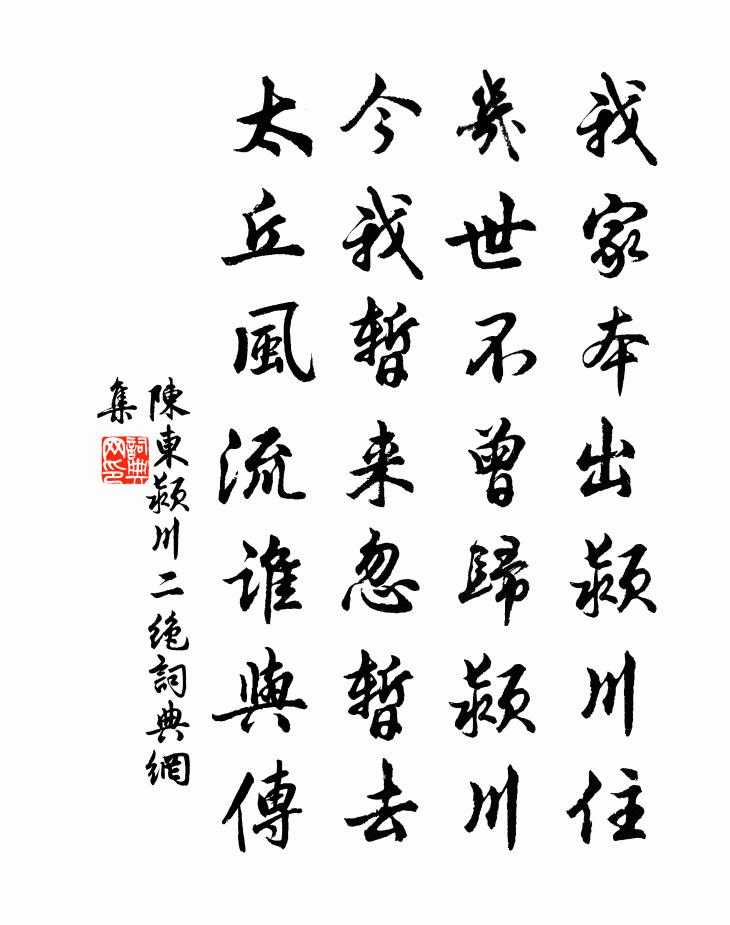 我家本出颍川住
幾世不曾歸颍川
今我暫来忽暫去
太丘風流誰與傳
陳東颍川二絶詞典網
集
詞典網印